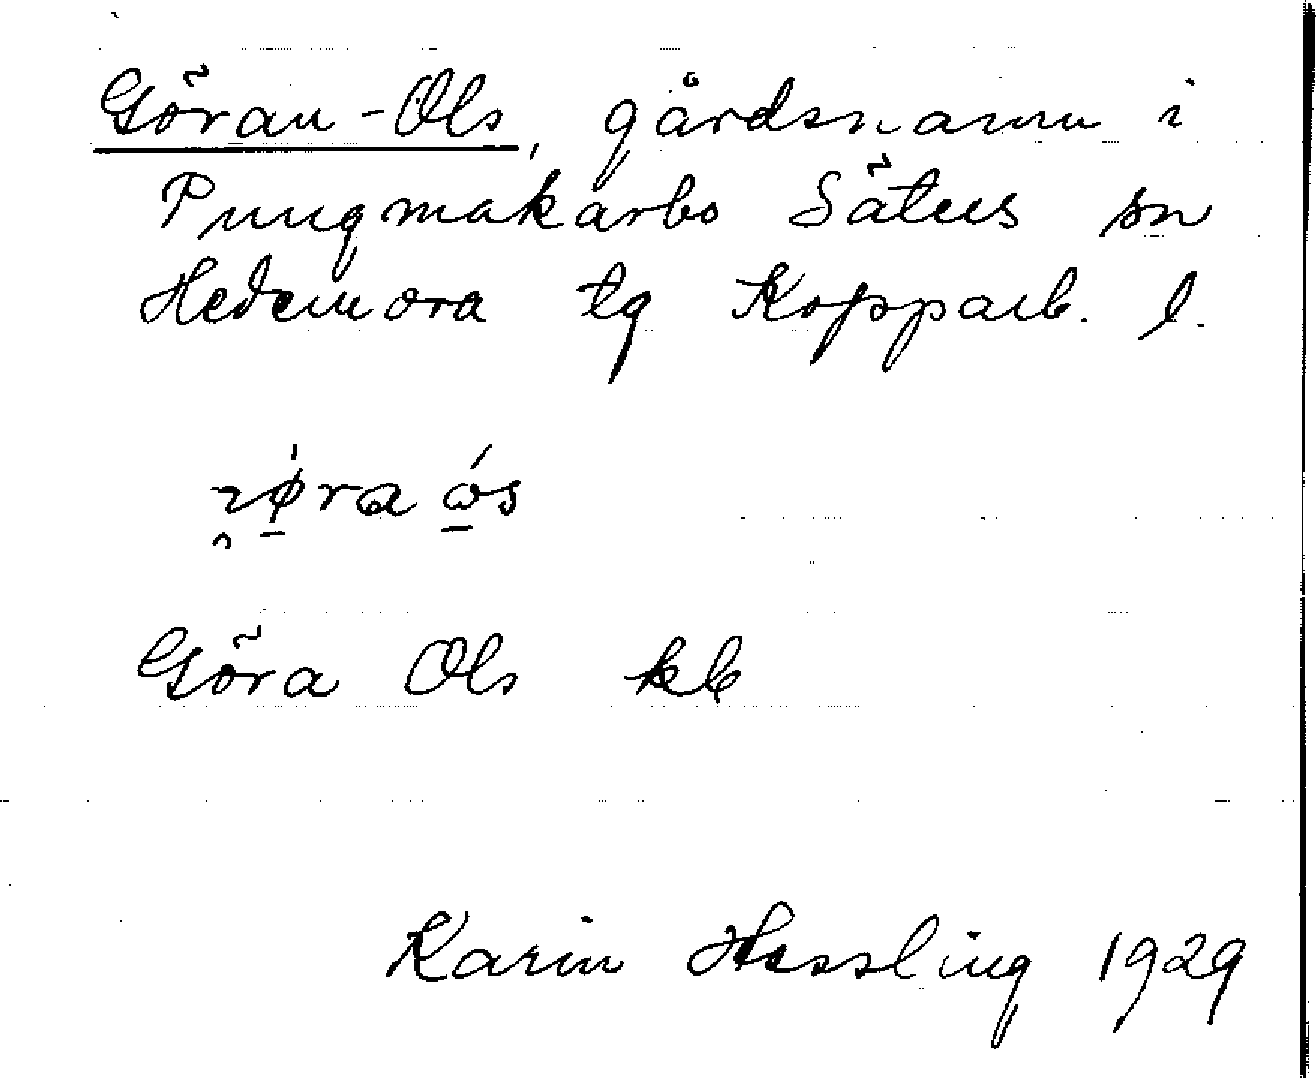 Göran-Ols, gårdsnamn i
Pungmakarbo Säters sn
Hedemora tg Kopparb. l.
Göra Ols kb
Karin Hessling 1929